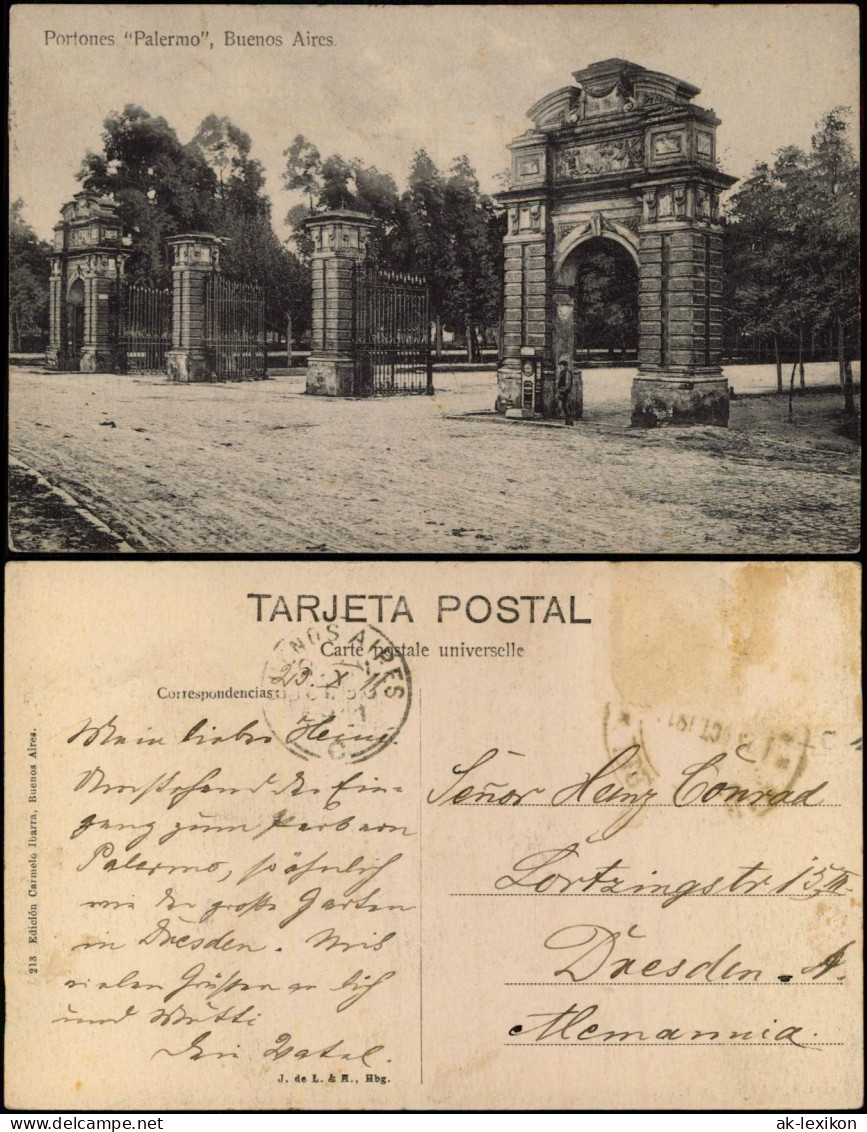 Portones "Palermo", Buenos Aires.
TARJETA POSTAL
Carte postale universelle
BUENOS AIRES
23. X. 11
Correspondencias:
C
Mein lieber Heinz.
Umstehend der Ein-
gang zum Park von
Palermo, so ähnlich
wie der große Garten
in Dresden. Mit
vielen Grüßen an Dich
und Mutti
Dein Vater.
Señor Heinz Conrad
Lortzingstr 15 III.
Dresden. A.
Alemannia.
213 Edición Carmelo Ibarra, Buenos Aires.
J. de L. & H., Hbg.
www.delcampe.net
ak-lexikon